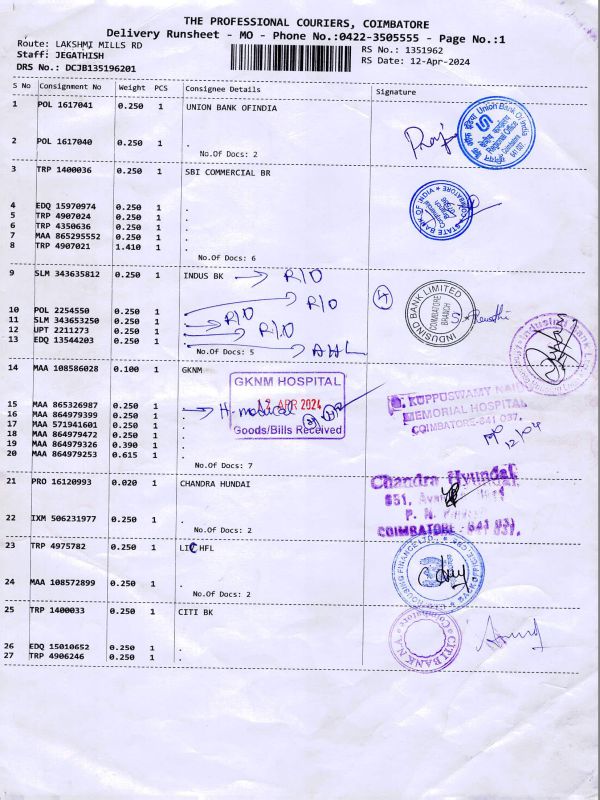 THE PROFESSIONAL COURIERS, COIMBATORE
Delivery Runsheet - MO - Phone No.:0422-3505555 - Page No.:1
Route: LAKSHMI MILLS RD
Staff: JEGATHISH
DRS No.: DCJB135196201
RS No.: 1351962
RS Date: 12-Apr-2024
S No Consignment No Weight PCS Consignee Details Signature
1 POL 1617041 0.250 1 UNION BANK OFINDIA
2 POL 1617040 0.250 1 .
No.Of Docs: 2
Union Bank Of India
Regional Office
3 TRP 1400036 0.250 1 SBI COMMERCIAL BR
4 EDQ 15970974 0.250 1 .
5 TRP 4907024 0.250 1 .
6 TRP 4350636 0.250 1 .
7 MAA 865295552 0.250 1 .
8 TRP 4907021 1.410 1 .
No.Of Docs: 6
STATE BANK OF INDIA
COIMBATORE
9 SLM 343635812 0.250 1 INDUS BK R/O
10 POL 2254550 0.250 1 . R/O
11 SLM 343653250 0.250 1 . R/O
12 UPT 2211273 0.250 1 . R/O
13 EDQ 13544203 0.250 1 .
No.Of Docs: 5 AHL
4
INDUSIND BANK LIMITED
COIMBATORE
BRANCH
Revathi
14 MAA 108586028 0.100 1 GKNM
GKNM HOSPITAL
12 APR 2024
Goods/Bills Received
15 MAA 865326987 0.250 1 . H-medical
16 MAA 864979399 0.250 1 .
17 MAA 571941601 0.250 1 .
18 MAA 864979472 0.250 1 .
19 MAA 864979326 0.390 1 .
20 MAA 864979253 0.615 1 .
No.Of Docs: 7
G. KUPPUSWAMY NAIDU
MEMORIAL HOSPITAL
COIMBATORE-641 037.
12/04
21 PRO 16120993 0.020 1 CHANDRA HUNDAI
22 IXM 506231977 0.250 1 .
No.Of Docs: 2
Chandra Hyundai
COIMBATORE - 641 037.
23 TRP 4975782 0.250 1 LICHFL
24 MAA 108572899 0.250 1 .
No.Of Docs: 2
HOUSING FINANCE LTD.
25 TRP 1400033 0.250 1 CITI BK
26 EDQ 15010652 0.250 1 .
27 TRP 4906246 0.250 1 .
CITI BANK N.A.
Coimbatore